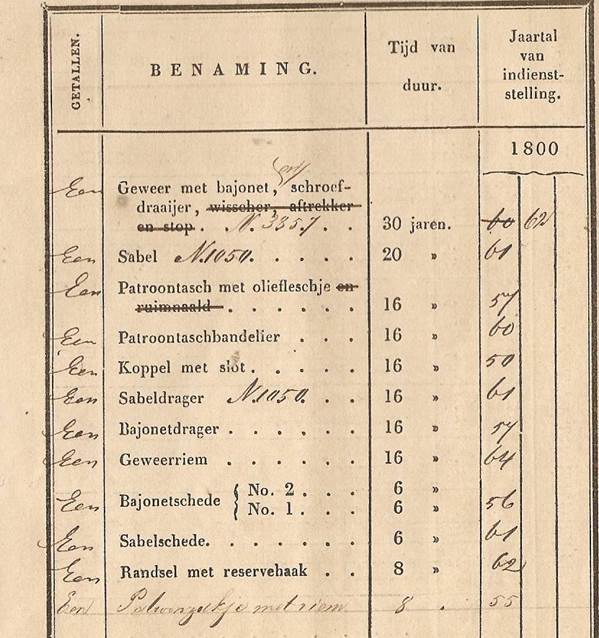 GETALLEN.
BENAMING.
Tijd van
duur.
Jaartal
van
indienst-
stelling.
1800
en
Een Geweer met bajonet, schroef-
draaijer, wisscher, aftrekker
en stop. N. 3357. . 30 jaren. 60 62
Een Sabel N.1050. . . . . . 20 " 61
Een Patroontasch met oliefleschje en
ruimnaald . . . . . . 16 " 57
Een Patroontaschbandelier . . . 16 " 60
Een Koppel met slot. . . . . 16 " 50
Een Sabeldrager N.1050. . . 16 " 61
Een Bajonetdrager . . . . . 16 " 57
Een Geweerriem . . . . . 16 " 64
Een Bajonetschede { No. 2 . . . 6 "
No. 1 . . . 6 " 56
Een Sabelschede. . . . . . . 6 " 61
Een Randsel met reservehaak . . 8 " 62
Een met riem 8 . 55